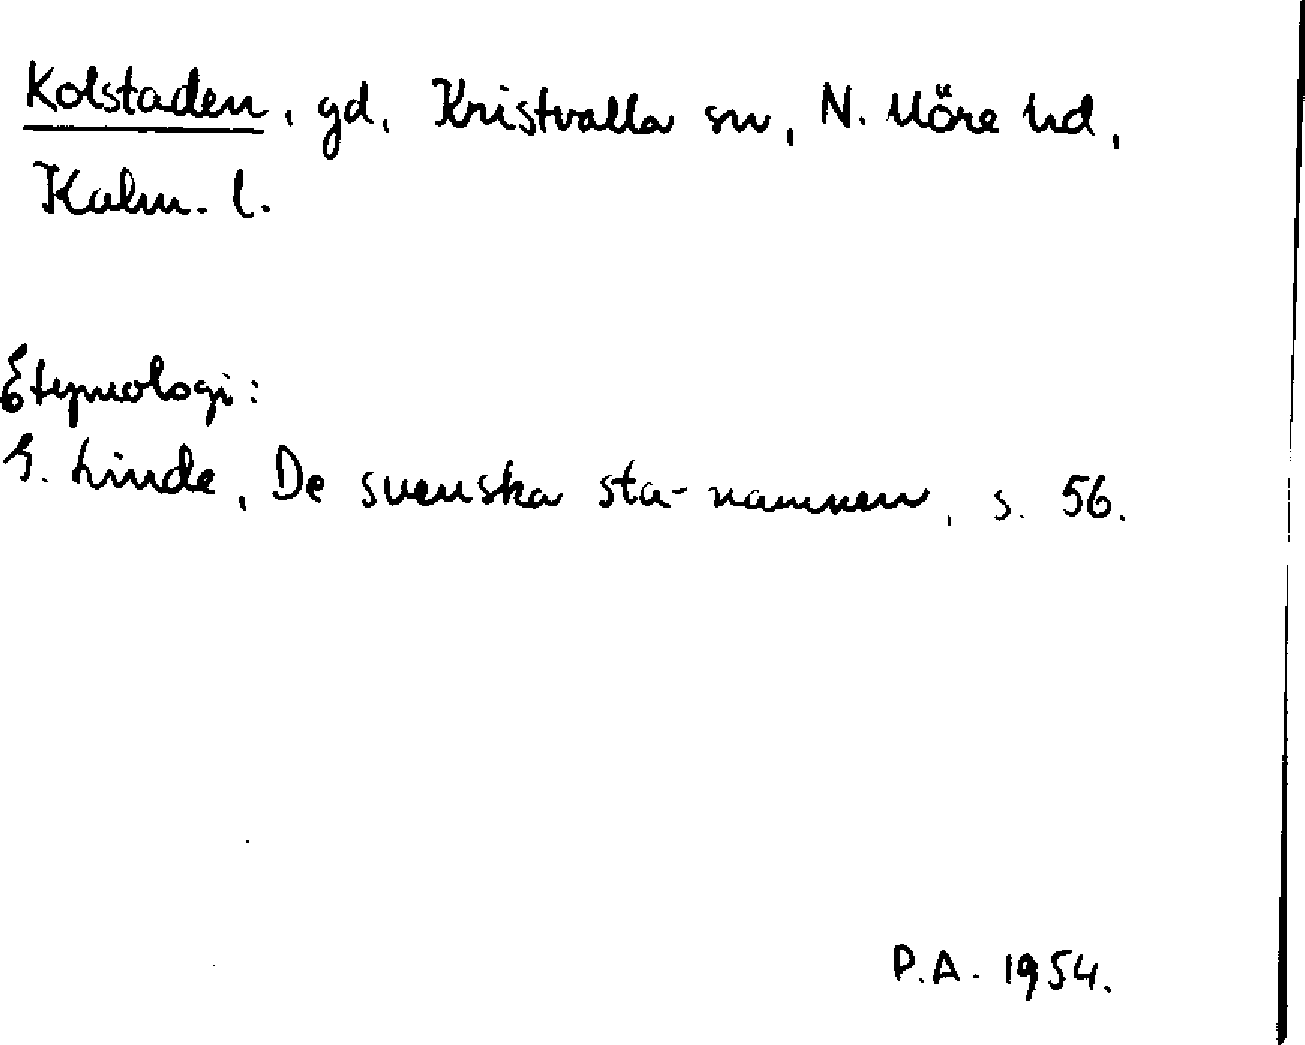 Kolstaden, gd, Kristvalla sn, N. Möre hd,
Kalm. l.
Etymologi:
G. Linde, De svenska sta-namnen, s. 56.
P.A. 1954.